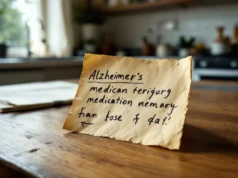 Alzheimer's
medican terigurg
medication nemary
fran fose f dat'